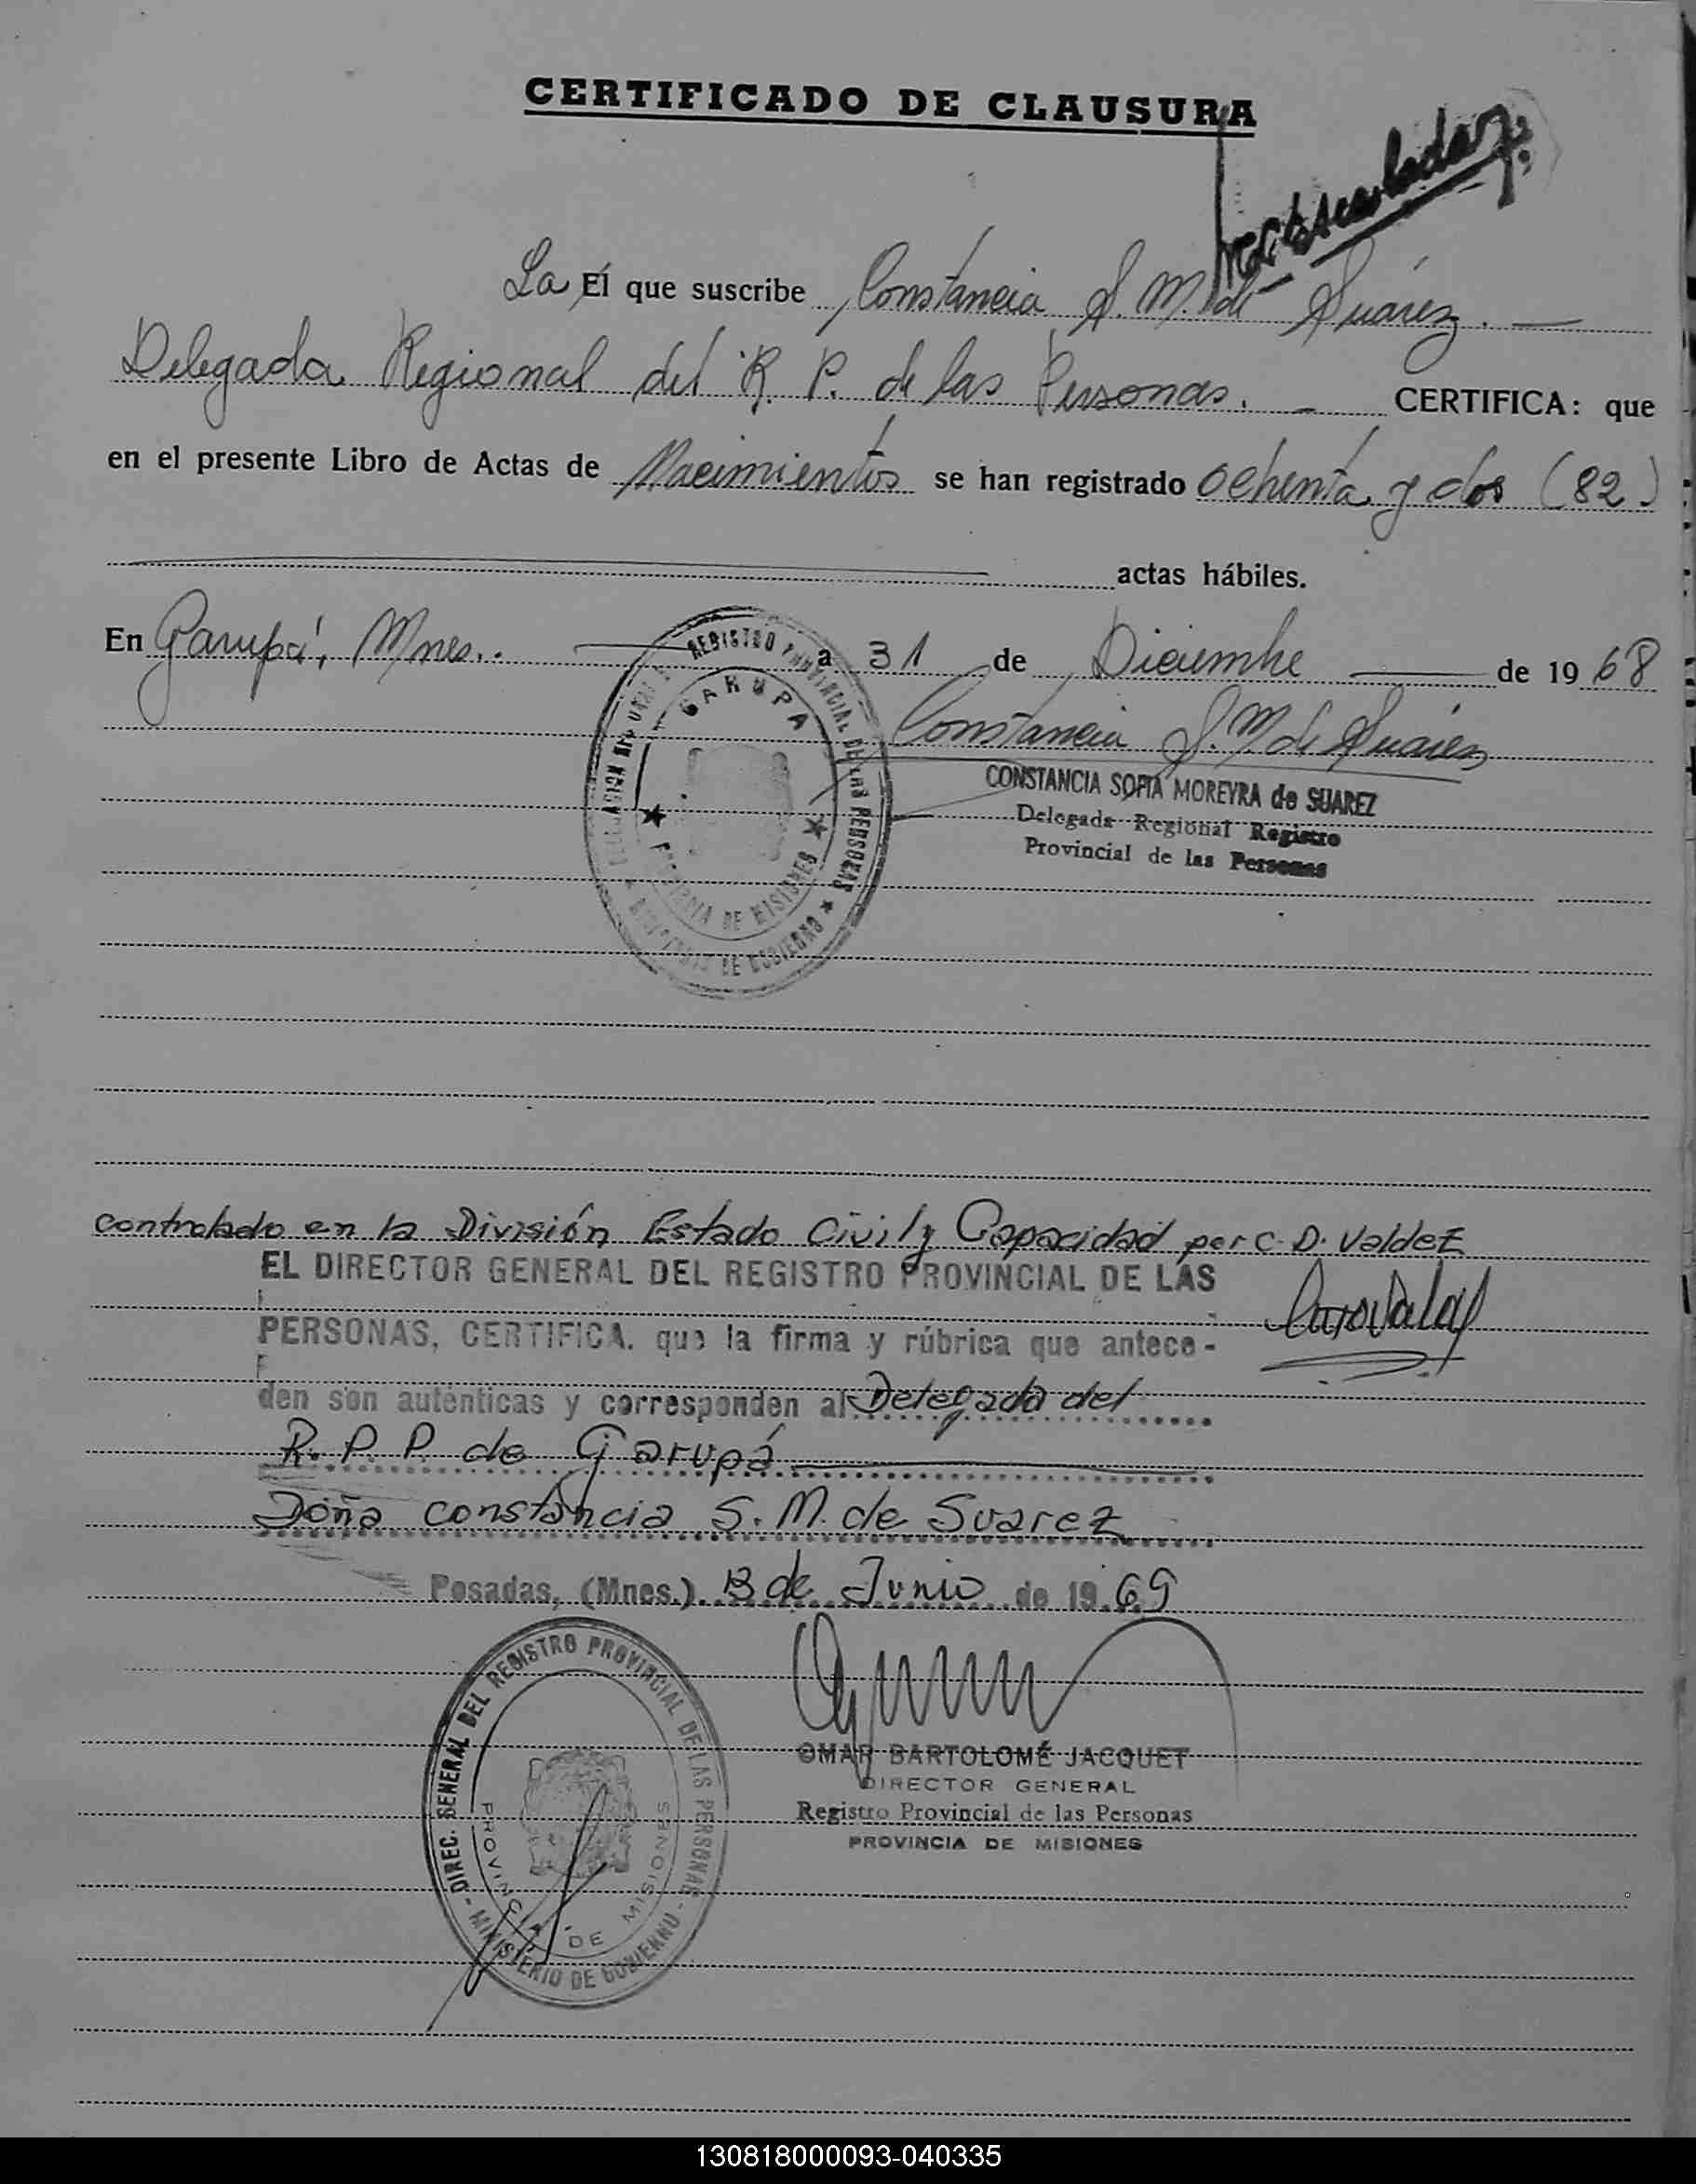 CERTIFICADO DE CLAUSURA
La El que suscribe Constancia S. M. de Suárez.
Delegada Regional del R. P. de las Personas. CERTIFICA: que
en el presente Libro de Actas de Nacimientos se han registrado ochenta y dos (82)
actas hábiles.
En Garupá, Mnes.. a 31 de Diciembre de 1968
REGISTRO PROVINCIAL DE LAS PERSONAS
GARUPA
PROVINCIA DE MISIONES
MINISTERIO DE GOBIERNO
Constancia S. M. de Suárez
CONSTANCIA SOFIA MOREYRA de SUAREZ
Delegada Regional Registro
Provincial de las Personas
controlado en la División Estado Civil y Capacidad por C. D. Valdez
EL DIRECTOR GENERAL DEL REGISTRO PROVINCIAL DE LAS
PERSONAS, CERTIFICA. que la firma y rúbrica que antece-
den son auténticas y corresponden al Delegada del
R. P. P. de Garupá
Doña Constancia S. M. de Suarez
Posadas, (Mnes.) 13 de Junio de 1969
DIREC. GENERAL DEL REGISTRO PROVINCIAL DE LAS PERSONAS
PROVINCIA DE MISIONES
- MINISTERIO DE GOBIERNO -
OMAR BARTOLOMÉ JACQUET
DIRECTOR GENERAL
Registro Provincial de las Personas
PROVINCIA DE MISIONES
130818000093-040335